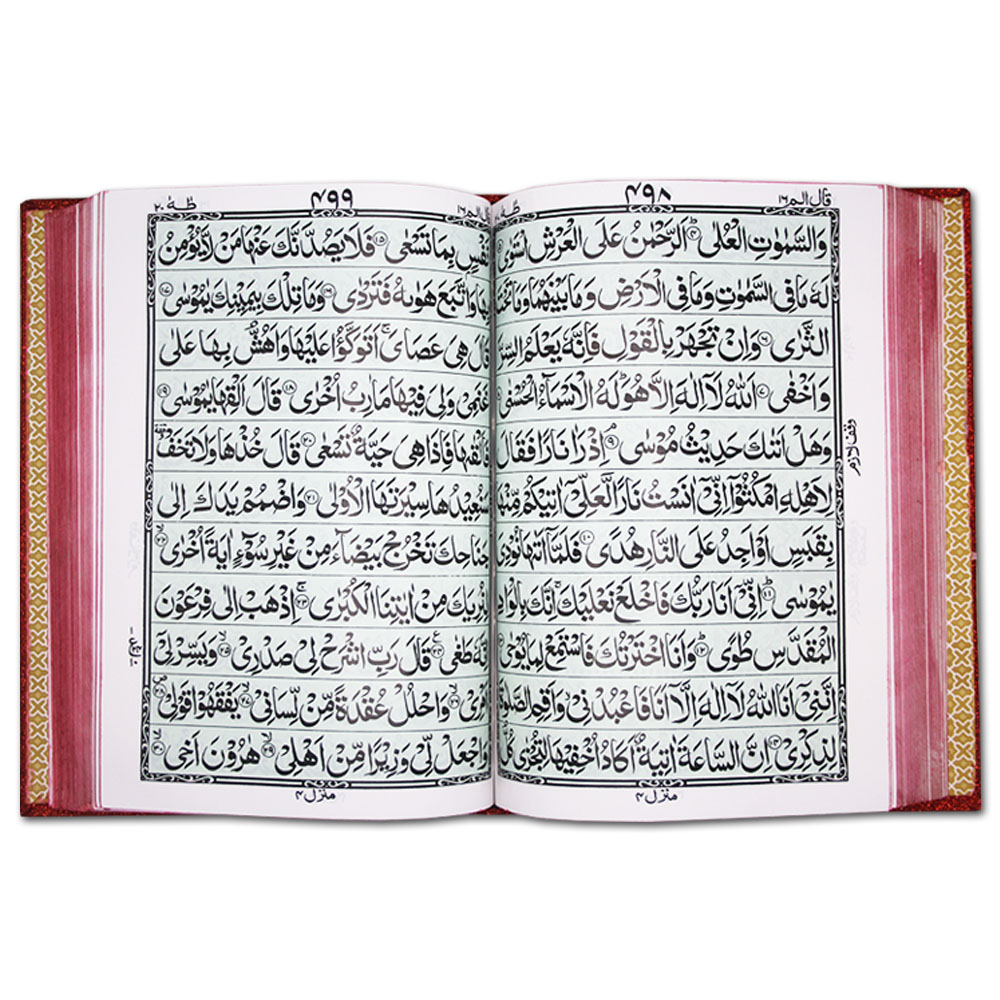 قال الم ١٦
۴۹۸
طٰهٰ
وَالسَّمٰوٰتِ الْعُلٰىؕ ﴿۴﴾ اَلرَّحْمٰنُ عَلَى الْعَرْشِ اسْتَوٰى
لَهٗ مَا فِى السَّمٰوٰتِ وَمَا فِى الْاَرْضِ وَمَا بَيْنَهُمَا وَمَا تَحْتَ
الثَّرٰى ﴿۶﴾ وَاِنْ تَجْهَرْ بِالْقَوْلِ فَاِنَّهٗ يَعْلَمُ
وَاَخْفٰى ﴿۷﴾ اَللّٰهُ لَاۤ اِلٰهَ اِلَّا هُوَؕ لَهُ الْاَسْمَآءُ الْحُسْنٰى
وَهَلْ اَتٰىكَ حَدِيْثُ مُوْسٰىۘ ﴿۹﴾ اِذْ رَاٰ نَارًا فَقَالَ
لِاَهْلِهِ امْكُثُوْۤا اِنِّىْۤ اٰنَسْتُ نَارًا لَّعَلِّىْۤ اٰتِيْكُمْ مِّنْهَا
بِقَبَسٍ اَوْ اَجِدُ عَلَى النَّارِ هُدًى ﴿۱۰﴾ فَلَمَّاۤ اَتٰىهَا نُوْدِىَ
يٰمُوْسٰىؕ ﴿۱۱﴾ اِنِّىْۤ اَنَا رَبُّكَ فَاخْلَعْ نَعْلَيْكَۚ اِنَّكَ بِالْوَادِ
الْمُقَدَّسِ طُوًىؕ ﴿۱۲﴾ وَاَنَا اخْتَرْتُكَ فَاسْتَمِعْ لِمَا يُوْحٰى
اِنَّنِىْۤ اَنَا اللّٰهُ لَاۤ اِلٰهَ اِلَّاۤ اَنَا فَاعْبُدْنِىْ وَاَقِمِ الصَّلٰوةَ
لِذِكْرِىْ ﴿۱۴﴾ اِنَّ السَّاعَةَ اٰتِيَةٌ اَكَادُ اُخْفِيْهَا لِتُجْزٰى كُلُّ
وقف لازم
منزل ۴
قال الم ١٦
۴۹۹
طٰهٰ ۲۰
نَفْسٍ بِمَا تَسْعٰى ﴿۱۵﴾ فَلَا يَصُدَّنَّكَ عَنْهَا مَنْ لَّا يُؤْمِنُ
بِهَا وَاتَّبَعَ هَوٰىهُ فَتَرْدٰى ﴿۱۶﴾ وَمَا تِلْكَ بِيَمِيْنِكَ يٰمُوْسٰى ﴿۱۷﴾
قَالَ هِىَ عَصَاىَۚ اَتَوَكَّؤُا عَلَيْهَا وَاَهُشُّ بِهَا عَلٰى
غَنَمِىْ وَلِىَ فِيْهَا مَاٰرِبُ اُخْرٰى ﴿۱۸﴾ قَالَ اَلْقِهَا يٰمُوْسٰى ﴿۱۹﴾
فَاَلْقٰىهَا فَاِذَا هِىَ حَيَّةٌ تَسْعٰى ﴿۲۰﴾ قَالَ خُذْهَا وَلَا تَخَفْ
سَنُعِيْدُهَا سِيْرَتَهَا الْاُوْلٰى ﴿۲۱﴾ وَاضْمُمْ يَدَكَ اِلٰى
جَنَاحِكَ تَخْرُجْ بَيْضَآءَ مِنْ غَيْرِ سُوْٓءٍ اٰيَةً اُخْرٰى ﴿۲۲﴾
لِنُرِيَكَ مِنْ اٰيٰتِنَا الْكُبْرٰىۚ ﴿۲۳﴾ اِذْهَبْ اِلٰى فِرْعَوْنَ
اِنَّهٗ طَغٰى ﴿۲۴﴾ قَالَ رَبِّ اشْرَحْ لِىْ صَدْرِىْ ﴿۲۵﴾ وَيَسِّرْ لِىْۤ
اَمْرِىْ ﴿۲۶﴾ وَاحْلُلْ عُقْدَةً مِّنْ لِّسَانِىْ ﴿۲۷﴾ يَفْقَهُوْا قَوْلِىْ ﴿۲۸﴾
وَاجْعَلْ لِّىْ وَزِيْرًا مِّنْ اَهْلِىْ ﴿۲۹﴾ هٰرُوْنَ اَخِى ﴿۳۰﴾
منزل ۴